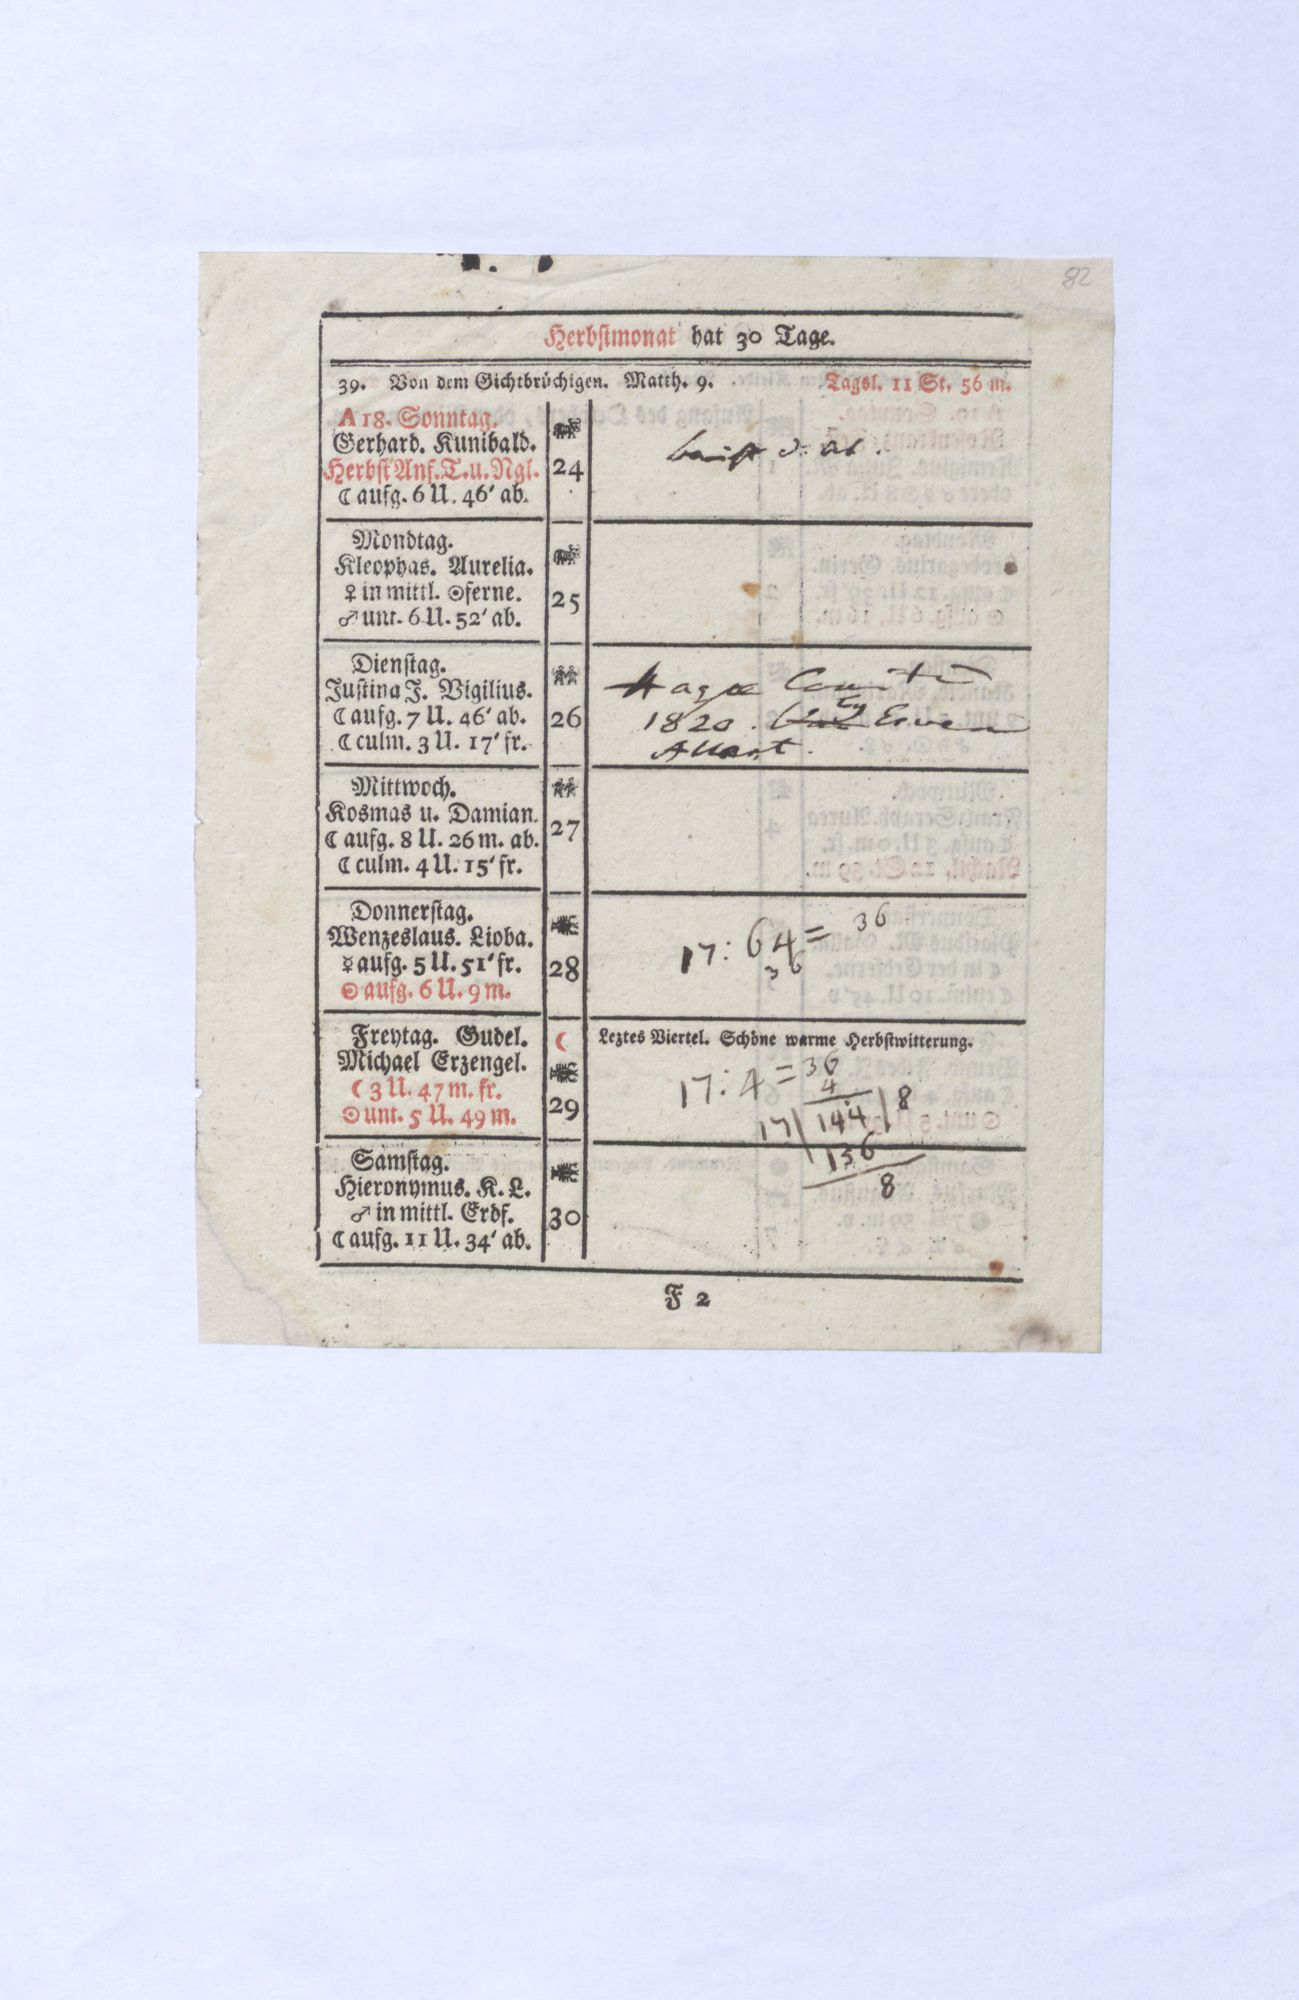 82
Herbstmonat hat 30 Tage.
39. Von dem Gichtbrüchigen. Matth. 9. Tagsl. 11 St. 56 m.
A 18. Sonntag.
Gerhard. Kunibald.
Herbst Anf. T. u. Ngl.
☾ aufg. 6 U. 46′ ab.
24
Mondtag.
Kleophas. Aurelia.
♀ in mittl. ☉ferne.
♂ unt. 6 U. 52′ ab.
25
Dienstag.
Justina J. Vigilius.
☾ aufg. 7 U. 46′ ab.
☾ culm. 3 U. 17′ fr.
26
Hagae
1820. Erven
Allart.
Mittwoch.
Kosmas u. Damian.
☾ aufg. 8 U. 26 m. ab.
☾ culm. 4 U. 15′ fr.
27
Donnerstag.
Wenzeslaus. Lioba.
☿ aufg. 5 U. 51′ fr.
☉ aufg. 6 U. 9 m.
28
17: 64 = 36
36
Freytag. Gudel.
Michael Erzengel.
☾ 3 U. 47 m. fr.
☉ unt. 5 U. 49 m.
☾
29
Leztes Viertel. Schöne warme Herbstwitterung.
17: 4 = 36
4
17 | 144 | 8
136
8
Samstag.
Hieronymus. K. L.
♂ in mittl. Erdf.
☾ aufg. 11 U. 34′ ab.
30
F 2